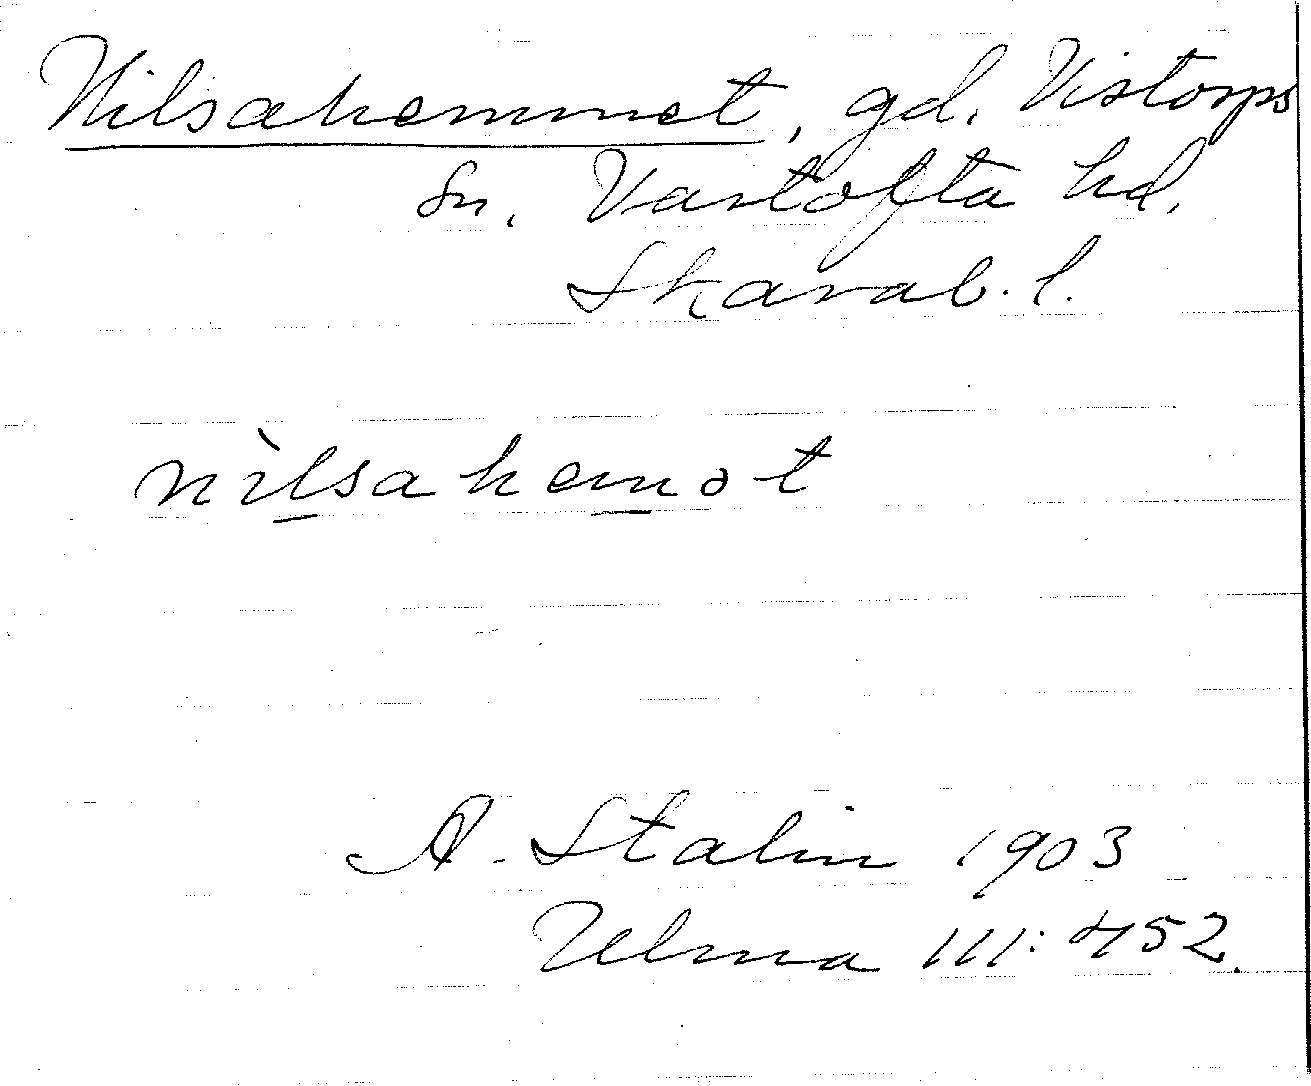 Nilsahemmet, gd. Vistorps
sn. Vartofta hd.
Skarab. l.
nìlsahemət
A. Stalin 1903
Ulma 111:452.